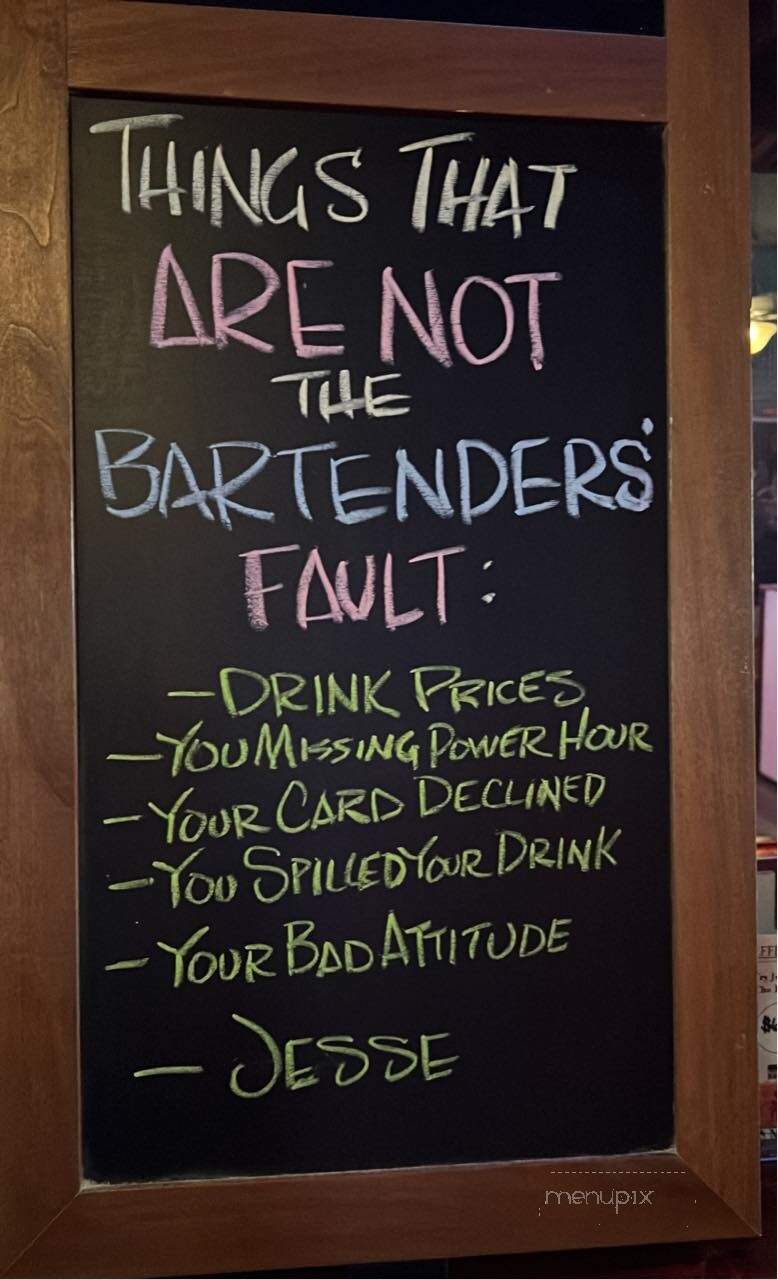 THINGS THAT
ARE NOT
THE
BARTENDERS'
FAULT:
- DRINK PRICES
- YOU MISSING POWER HOUR
- YOUR CARD DECLINED
- YOU SPILLED YOUR DRINK
- YOUR BAD ATTITUDE
- JESSE
menupix